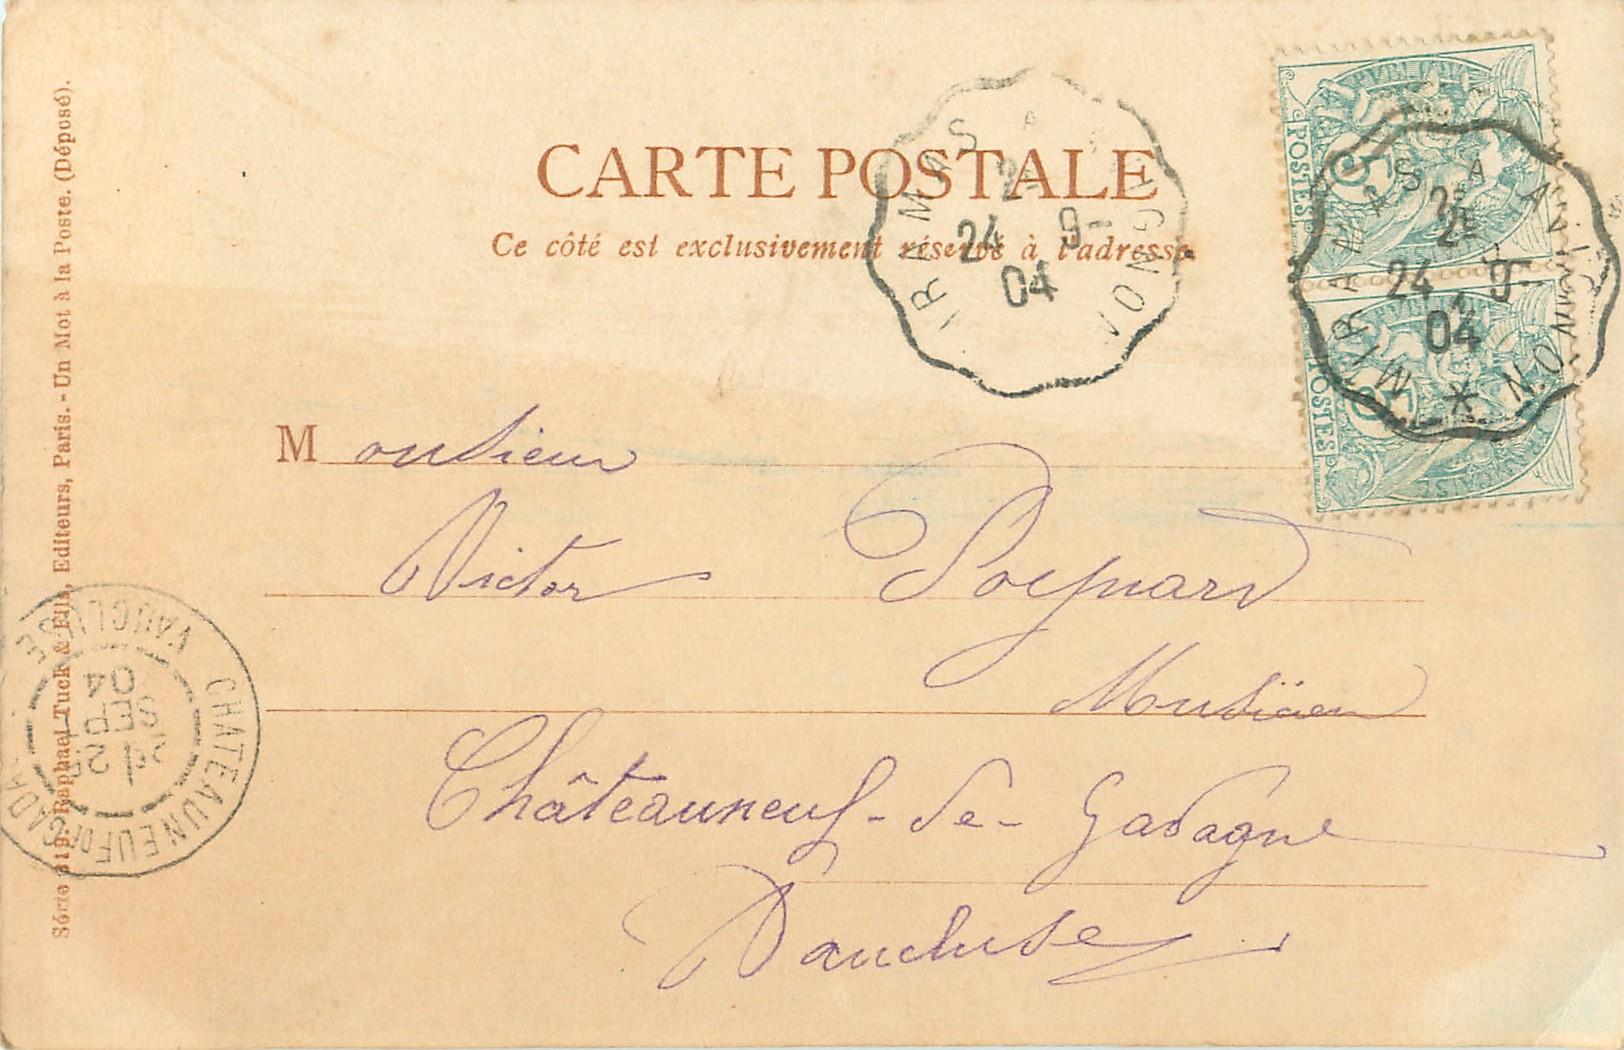 CARTE POSTALE
Ce côté est exclusivement réservé à l'adresse
MIRAMAS A
2E
24 9-
04
POSTES
5
MIRAMAS A AVIGNON
2E
24 9-
04
POSTES
5
Monsieur
Victor Poynard
Musicien
Châteauneuf-de-Gadagne
Vaucluse
Série 619. Raphael Tuck & Fils, Editeurs, Paris. - Un Mot à la Poste. (Déposé).
CHATEAUNEUF DE GADA
VAUCLUSE
25
SEPT
04